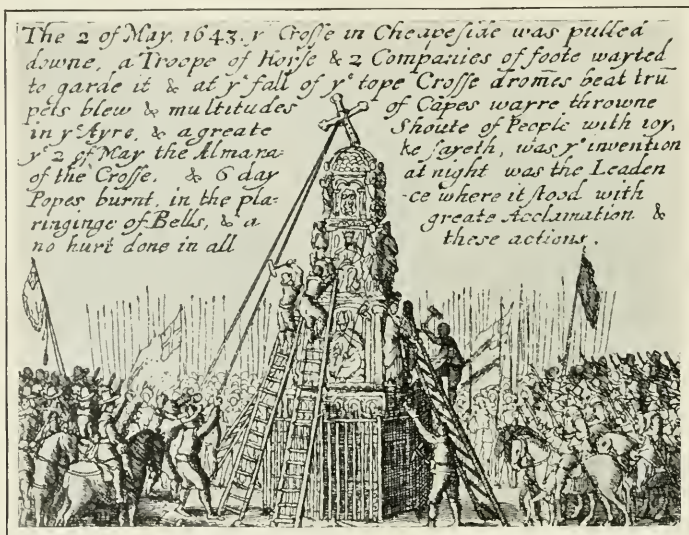 The 2 of May. 1643. yᵉ Crosse in Cheapeside was pulled
downe, a Troope of Horse & 2 Companies of foote wayted
to garde it & at yᵉ fall of yᵉ tope Crosse dromes beat tru
pets blew & multitudes of Capes wayre throwne
in yᵉ Ayre, & a greate Shoute of People with ioy,
yᵉ 2 of May the Almana= ke sayeth, was yᵉ invention
of the Crosse, & 6 day at night was the Leaden
Popes burnt, in the pla= -ce where it stood with
ringinge of Bells, & a greate Acclamation &
no hurt done in all these actions.